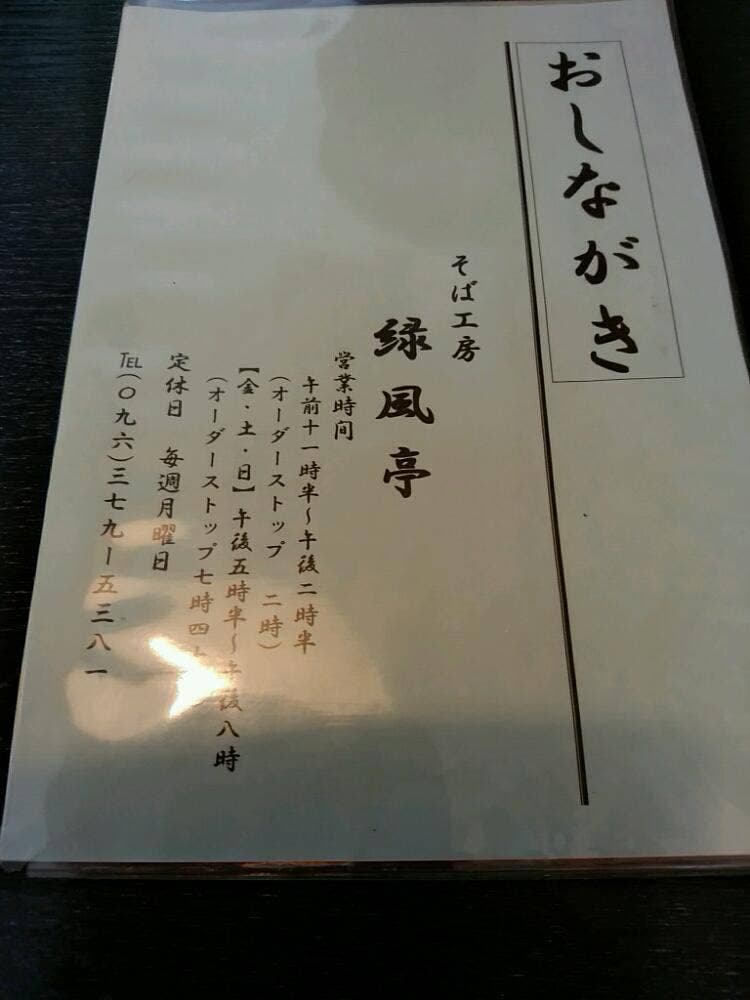 おしながき
そば工房
緑風亭
営業時間
午前十一時半～午後二時半
（オーダーストップ 二時）
【金・土・日】午後五時半～午後八時
（オーダーストップ七時四
定休日 毎週月曜日
TEL（〇九六）三七九ー五三八一